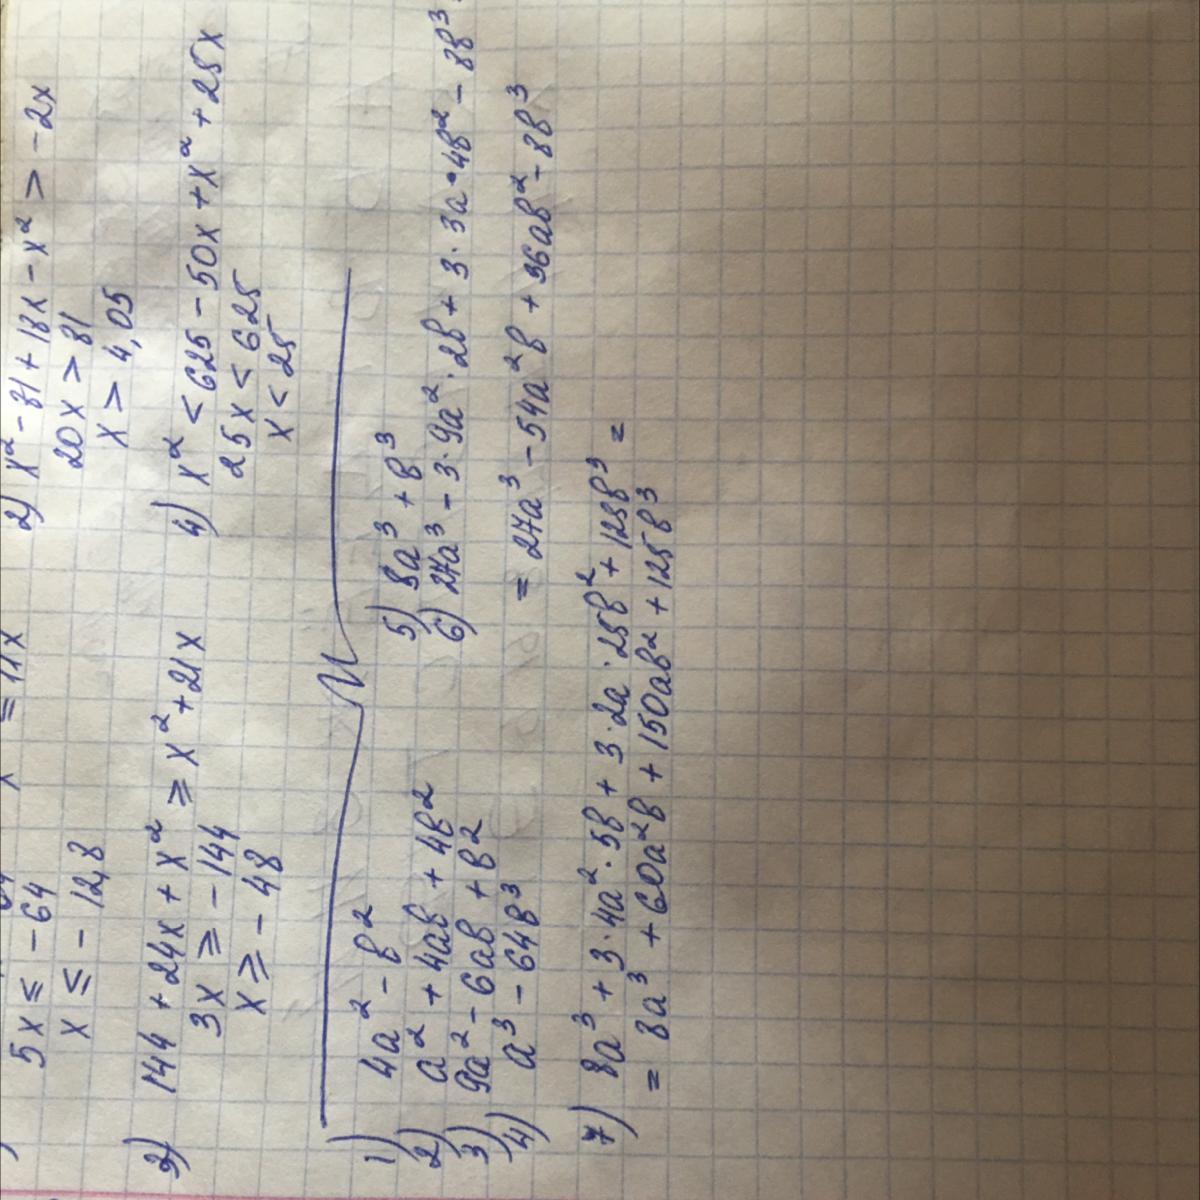 = 11x
5x ≤ -64
x ≤ -12,8
2) x² - 81 + 18x - x² > -2x
20x > 81
x > 4,05
3) 144 + 24x + x² ≥ x² + 21x
3x ≥ -144
x ≥ -48
4) x² < 625 - 50x + x² + 25x
25x < 625
x < 25
1) 4a² - b²
2) a² + 4ab + 4b²
3) 9a² - 6ab + b²
4) a³ - 64b³
5) 8a³ + b³
6) 27a³ - 3·9a²·2b + 3·3a·4b² - 8b³
= 27a³ - 54a²b + 36ab² - 8b³
7) 8a³ + 3·4a²·5b + 3·2a·25b² + 125b³ =
= 8a³ + 60a²b + 150ab² + 125b³